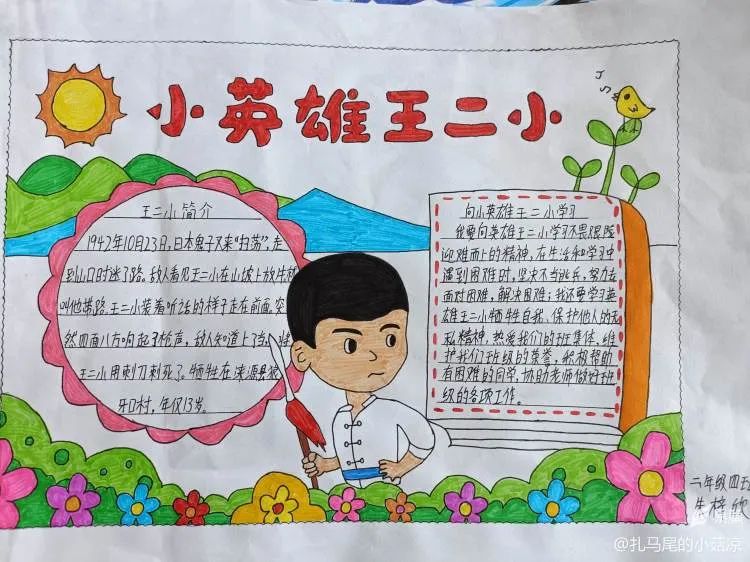 小英雄王二小
王二小简介
1942年10月23日,日本鬼子又来"扫荡",走
到山口时迷了路。敌人看见王二小在山坡上放牛
叫他带路。王二小装着听话的样子走在前面,突
然四面八方响起了枪声,敌人知道上了当,
王二小用刺刀刺死了。牺牲在涞源县狼
牙口村,年仅13岁。
向小英雄王二小学习
我要向英雄王二小学习不畏艰险
迎难而上的精神,在生活和学习中
遇到困难时,坚决不当逃兵,努力去
面对困难,解决困难;我还要学习英
雄王二小牺牲自我、保护他人的无
私精神,热爱我们的班集体,维
护我们班级的荣誉,积极帮助
有困难的同学,协助老师做好班
级的各项工作。
二年级四班
朱梓欣
@扎马尾的小菇凉